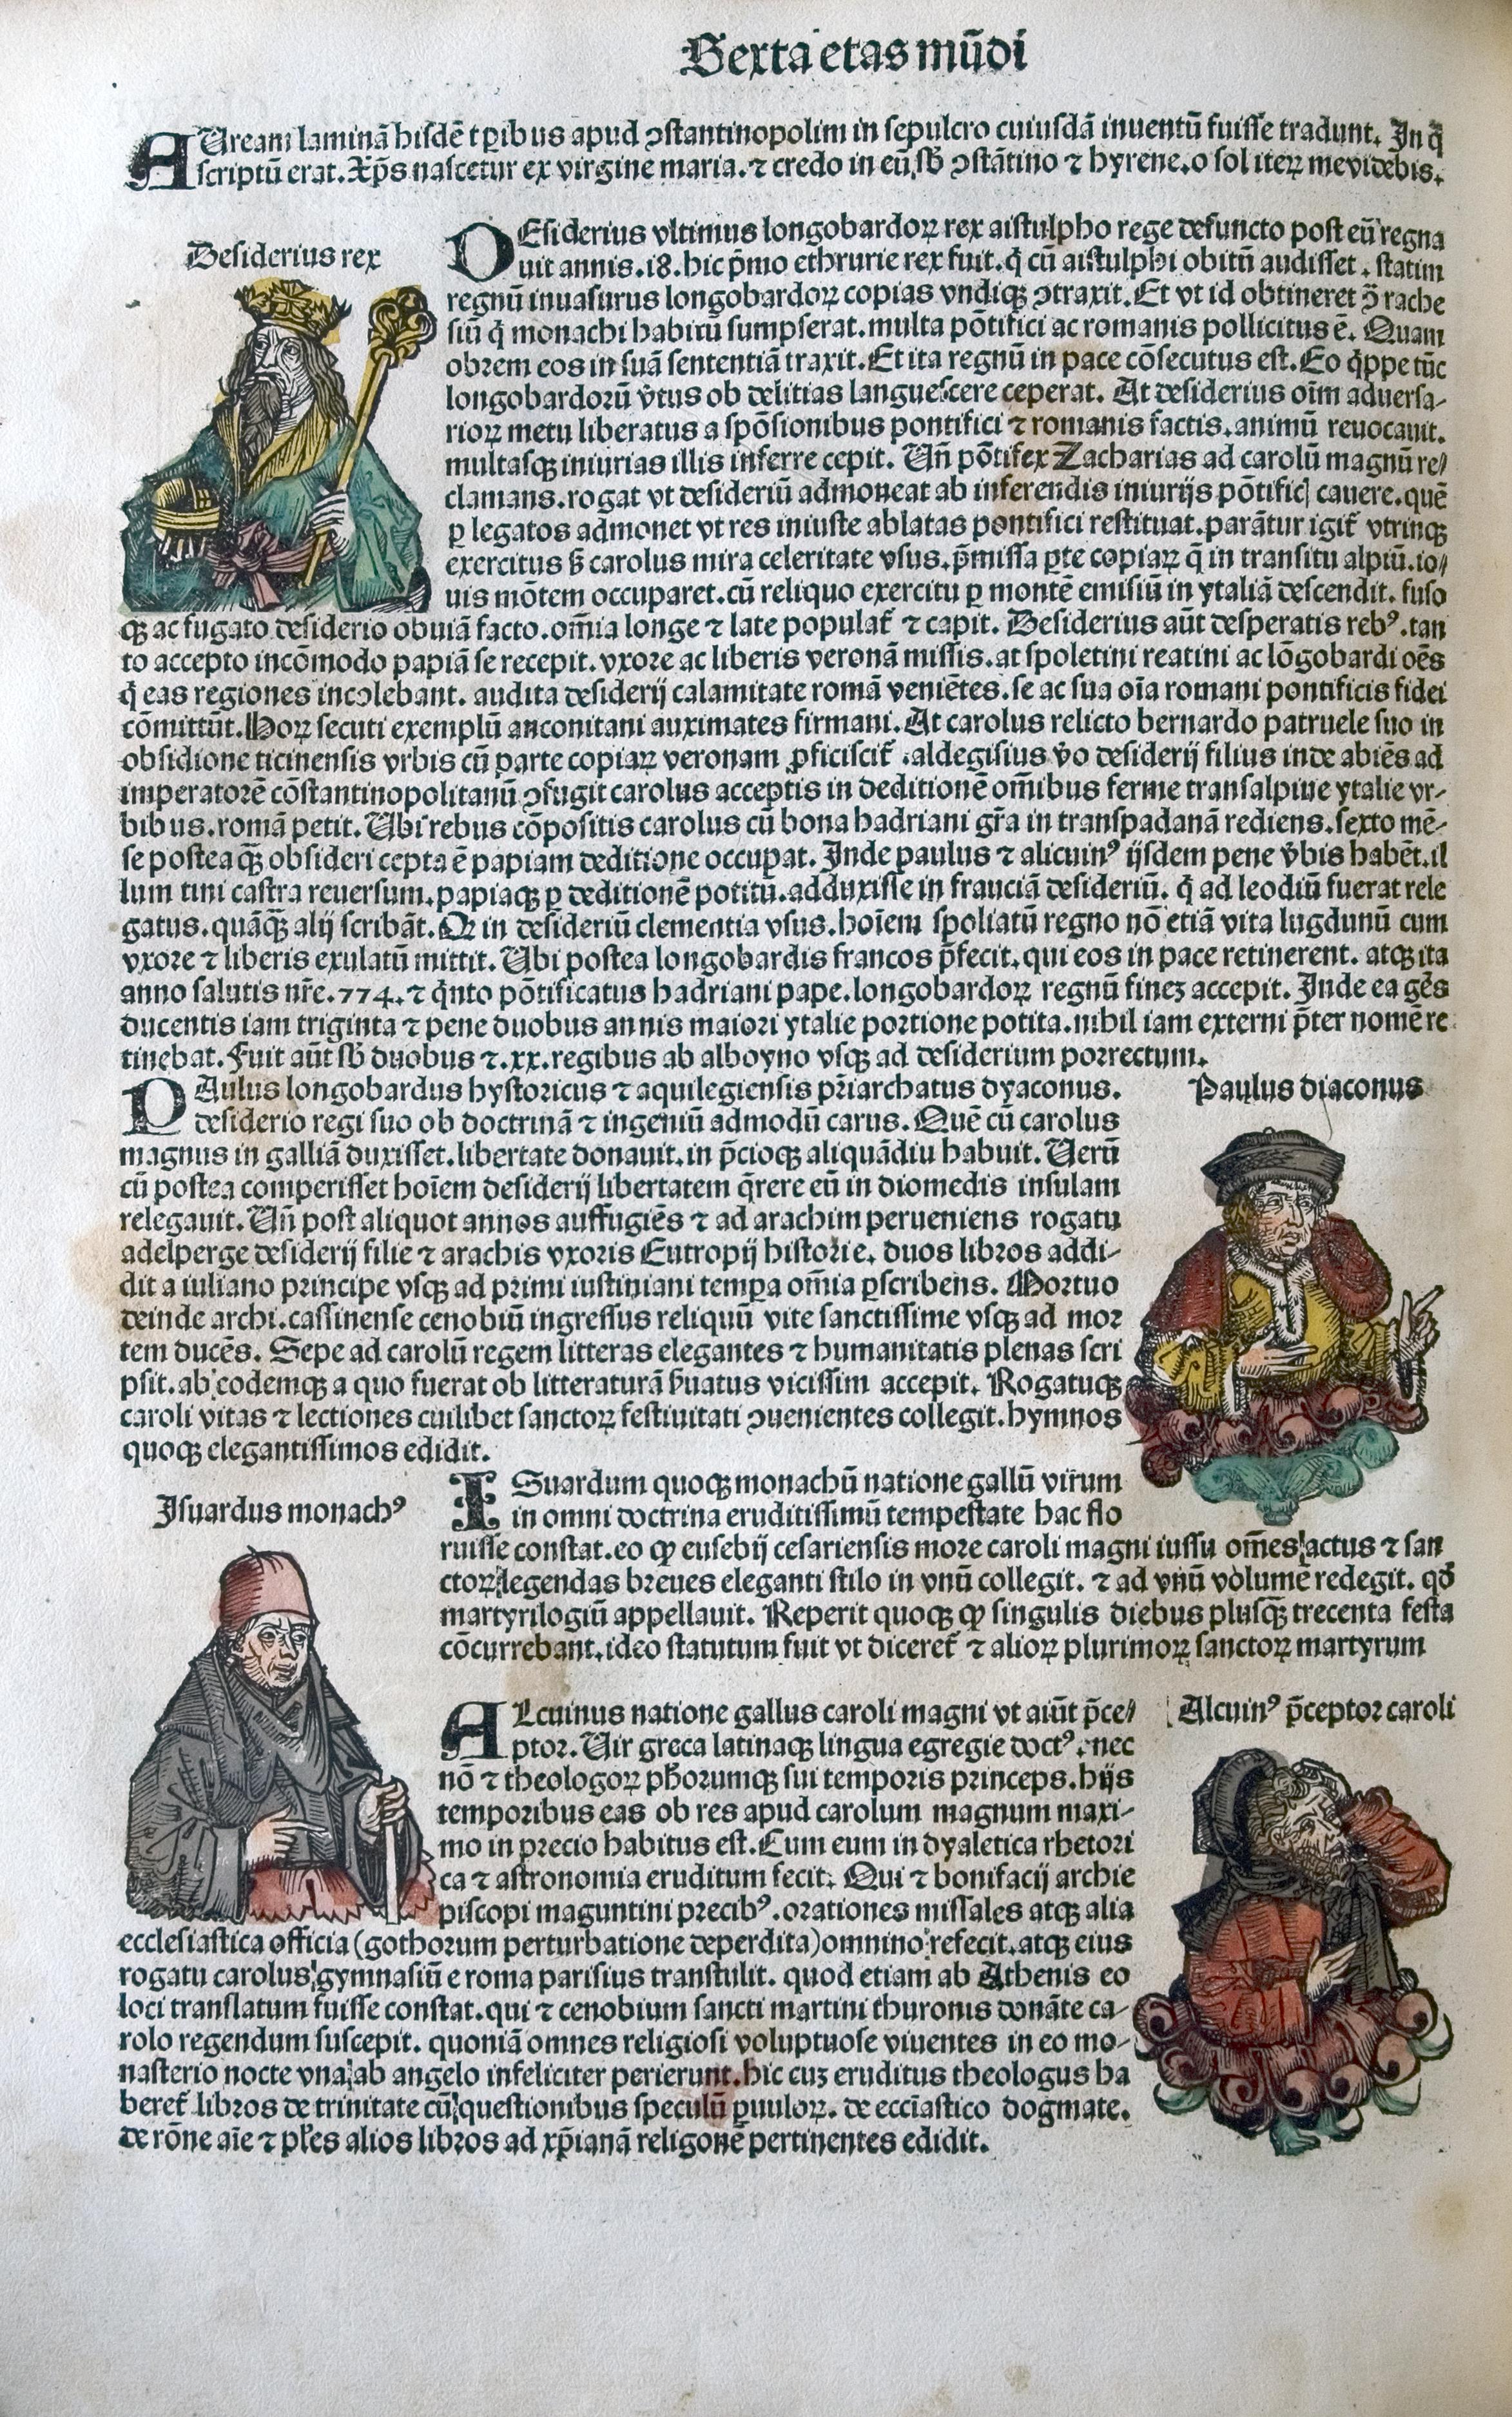 Sexta etas mūdi
AUream laminā hisdē tꝑibus apud ꝯstantinopolim in sepulcro cuiusdā inuentū fuisse tradunt. In q̄
scriptū erat. Xp̄s nascetur ex virgine maria. ⁊ credo in eū. sb̄ ꝯstātino ⁊ hyrene. o sol iterꝝ me videbis.
Desiderius rex
DEsiderius vltimus longobardoꝝ rex aistulpho rege defuncto post eū regna
uit annis .18. hic p̄mo ethrurie rex fuit. q̇ cū aistulphi obitū audisset, statim
regnū inuasurus longobardoꝝ copias vndiqꝫ ꝯtraxit. Et vt id obtineret ꝯ̄ rache
siū q̇ monachi habitū sumpserat. multa pōtifici ac romanis pollicitus ē. Quam
obrem eos in suā sententiā traxit. Et ita regnū in pace cōsecutus est. Eo q̇ppe tūc
longobardorū v̄tus ob delitias languescere ceperat. At desiderius oīm aduersa-
rioꝝ metu liberatus a spōsionibus pontifici ⁊ romanis factis. animū reuocauit.
multasqꝫ iniurias illis inferre cepit. Un̄ pōtifex Zacharias ad carolū magnū re/
clamans. rogat vt desideriū admoneat ab inferendis iniurijs pōtificꝭ cauere. quē
ꝑ legatos admonet vt res iniuste ablatas pontifici restituat. parātur igit̄ vtrinqꝫ
exercitus sꝫ carolus mira celeritate vsus. p̄missa ꝑte copiaꝝ q̄ in transitu alpiū. io/
uis mōtem occuparet. cū reliquo exercitu ꝑ montē emisiū in ytaliā descendit. fuso
qꝫ ac fugato desiderio obuiā facto. om̄ia longe ⁊ late populat̄ ⁊ capit. Desiderius aūt desperatis rebꝰ. tan
to accepto incōmodo papiā se recepit. vxore ac liberis veronā missis. at spoletini reatini ac lōgobardi oēs
q̇ eas regiones incolebant. audita desiderij calamitate romā veniētes. se ac sua oīa romani pontificis fidei
cōmittūt. Hoꝝ secuti exemplū anconitani auximates firmani. At carolus relicto bernardo patruele suo in
obsidione ticinensis vrbis cū parte copiaꝝ veronam ꝓficiscit̄. aldegisius v̄o desiderij filius inde abiēs ad
imperatorē cōstantinopolitanū ꝯfugit carolus acceptis in deditionē om̄ibus ferme transalpine ytalie vr-
bibus. romā petit. Ubi rebus cōpositis carolus cū bona hadriani gr̄a in transpadanā rediens. sexto mē-
se posteaqꝫ̄ obsideri cepta ē papiam deditione occupat. Inde paulus ⁊ alicuinꝰ ijsdem pene v̄bis habēt. il
lum tini castra reuersum. papiaqꝫ ꝑ deditionē potitū. adduxisse in franciā desideriū. q̇ ad leodiū fuerat rele
gatus. quāqꝫ̄ alij scribāt. Qꝫ in desideriū clementia vsus. hoīem spoliatū regno nō etiā vita lugdunū cum
vxore ⁊ liberis exulatū mittit. Ubi postea longobardis francos p̄fecit. qui eos in pace retinerent. atqꝫ ita
anno salutis nr̄e .774. ⁊ q̇nto pōtificatus hadriani pape. longobardoꝝ regnū fineꝫ accepit. Inde ea gēs
ducentis iam triginta ⁊ pene duobus annis maiori ytalie portione potita. nihil iam externi p̄ter nomē re
tinebat. Fuit aūt sb̄ duobus ⁊ .xx. regibus ab alboyno vsqꝫ ad desiderium porrectum.
PAulus longobardus hystoricus ⁊ aquilegiensis pr̄iarchatus dyaconus.
desiderio regi suo ob doctrinā ⁊ ingeniū admodū carus. Quē cū carolus
magnus in galliā duxisset. libertate donauit. in p̄cioqꝫ aliquādiu habuit. Uerū
cū postea comperisset hoīem desiderij libertatem q̄rere eū in diomedis insulam
relegauit. Un̄ post aliquot annos auffugiēs ⁊ ad arachim perueniens rogatu
adelperge desiderij filie ⁊ arachis vxoris Eutropij historie. duos libros addi-
dit a iuliano principe vsqꝫ ad primi iustiniani tempa om̄ia ꝑscribens. Mortuo
deinde archi. cassinense cenobiū ingressus reliquū vite sanctissime vsqꝫ ad mor
tem ducēs. Sepe ad carolū regem litteras elegantes ⁊ humanitatis plenas scri
psit. ab eodemqꝫ a quo fuerat ob litteraturā s̄uatus vicissim accepit. Rogatuqꝫ
caroli vitas ⁊ lectiones cuilibet sanctoꝝ festiuitati ꝯuenientes collegit. hymnos
quoqꝫ elegantissimos edidit.
Paulus diaconus
Isuardus monachꝰ
ISuardum quoqꝫ monachū natione gallū virum
in omni doctrina eruditissimū tempestate hac flo
ruisse constat. eo ꝙ eusebij cesariensis more caroli magni iussu om̄es actus ⁊ san
ctoꝝ legendas breues eleganti stilo in vnū collegit. ⁊ ad vnū volumē redegit. qd̄
martyrilogiū appellauit. Reperit quoqꝫ ꝙ singulis diebus plusqꝫ̄ trecenta festa
cōcurrebant. ideo statutum fuit vt diceret̄ ⁊ alioꝝ plurimoꝝ sanctoꝝ martyrum
ALcuinus natione gallus caroli magni vt aiūt p̄ce/
ptor. Uir greca latinaqꝫ lingua egregie doctꝰ. nec
nō ⁊ theologoꝝ ph̄orumqꝫ sui temporis princeps. hijs
temporibus eas ob res apud carolum magnum maxi-
mo in precio habitus est. Cum eum in dyaletica rhetori
ca ⁊ astronomia eruditum fecit. Qui ⁊ bonifacij archie
piscopi maguntini precibꝰ. orationes missales atqꝫ alia
ecclesiastica officia (gothorum perturbatione deperdita) omnino refecit. atqꝫ eius
rogatu carolus gymnasiū e roma parisius transtulit. quod etiam ab Athenis eo
loci translatum fuisse constat. qui ⁊ cenobium sancti martini thuronis donāte ca-
rolo regendum suscepit. quoniā omnes religiosi voluptuose viuentes in eo mo-
nasterio nocte vna ab angelo infeliciter perierunt. hic cuꝫ eruditus theologus ha
beret̄ libros de trinitate cū questionibus speculū ꝑuuloꝝ. de ecciāstico dogmate.
de rōne aīe ⁊ pl̄es alios libros ad xp̄ianā religonē pertinentes edidit.
Alcuinꝰ p̄ceptor caroli